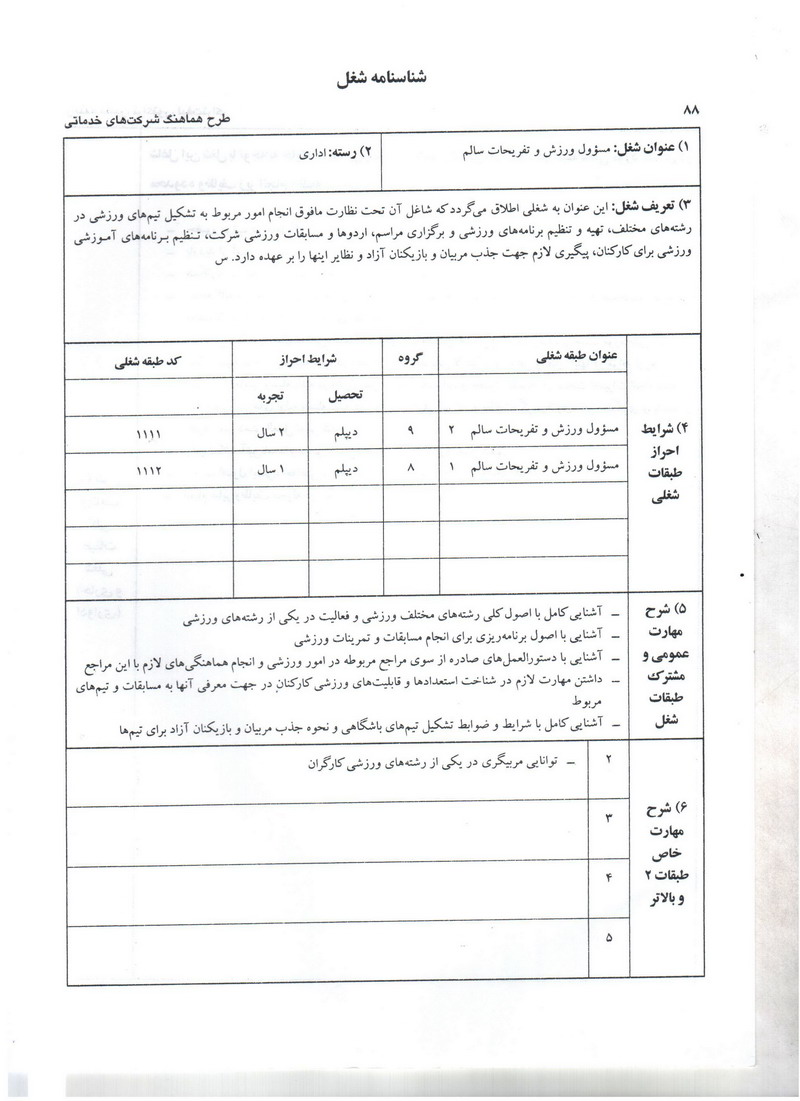 شناسنامه شغل
۸۸
طرح هماهنگ شرکت‌های خدماتی
۱) عنوان شغل: مسؤول ورزش و تفریحات سالم
۲) رسته: اداری
۳) تعریف شغل: این عنوان به شغلی اطلاق می‌گردد که شاغل آن تحت نظارت مافوق انجام امور مربوط به تشکیل تیم‌های ورزشی در
رشته‌های مختلف، تهیه و تنظیم برنامه‌های ورزشی و برگزاری مراسم، اردوها و مسابقات ورزشی شرکت، تنظیم برنامه‌های آموزشی
ورزشی برای کارکنان، پیگیری لازم جهت جذب مربیان و بازیکنان آزاد و نظایر اینها را بر عهده دارد. س
۴) شرایط
احراز
طبقات
شغلی
عنوان طبقه شغلی گروه شرایط احراز کد طبقه شغلی
تحصیل تجربه
مسؤول ورزش و تفریحات سالم ۲ ۹ دیپلم ۲ سال ۱۱۱۱
مسؤول ورزش و تفریحات سالم ۱ ۸ دیپلم ۱ سال ۱۱۱۲
۵) شرح
مهارت
عمومی و
مشترک
طبقات
شغل
– آشنایی کامل با اصول کلی رشته‌های مختلف ورزشی و فعالیت در یکی از رشته‌های ورزشی
– آشنایی با اصول برنامه‌ریزی برای انجام مسابقات و تمرینات ورزشی
– آشنایی با دستورالعمل‌های صادره از سوی مراجع مربوطه در امور ورزشی و انجام هماهنگی‌های لازم با این مراجع
– داشتن مهارت لازم در شناخت استعدادها و قابلیت‌های ورزشی کارکنان در جهت معرفی آنها به مسابقات و تیم‌های
مربوط
– آشنایی کامل با شرایط و ضوابط تشکیل تیم‌های باشگاهی و نحوه جذب مربیان و بازیکنان آزاد برای تیم‌ها
۶) شرح
مهارت
خاص
طبقات ۲
و بالاتر
۲ – توانایی مربیگری در یکی از رشته‌های ورزشی کارگران
۳
۴
۵